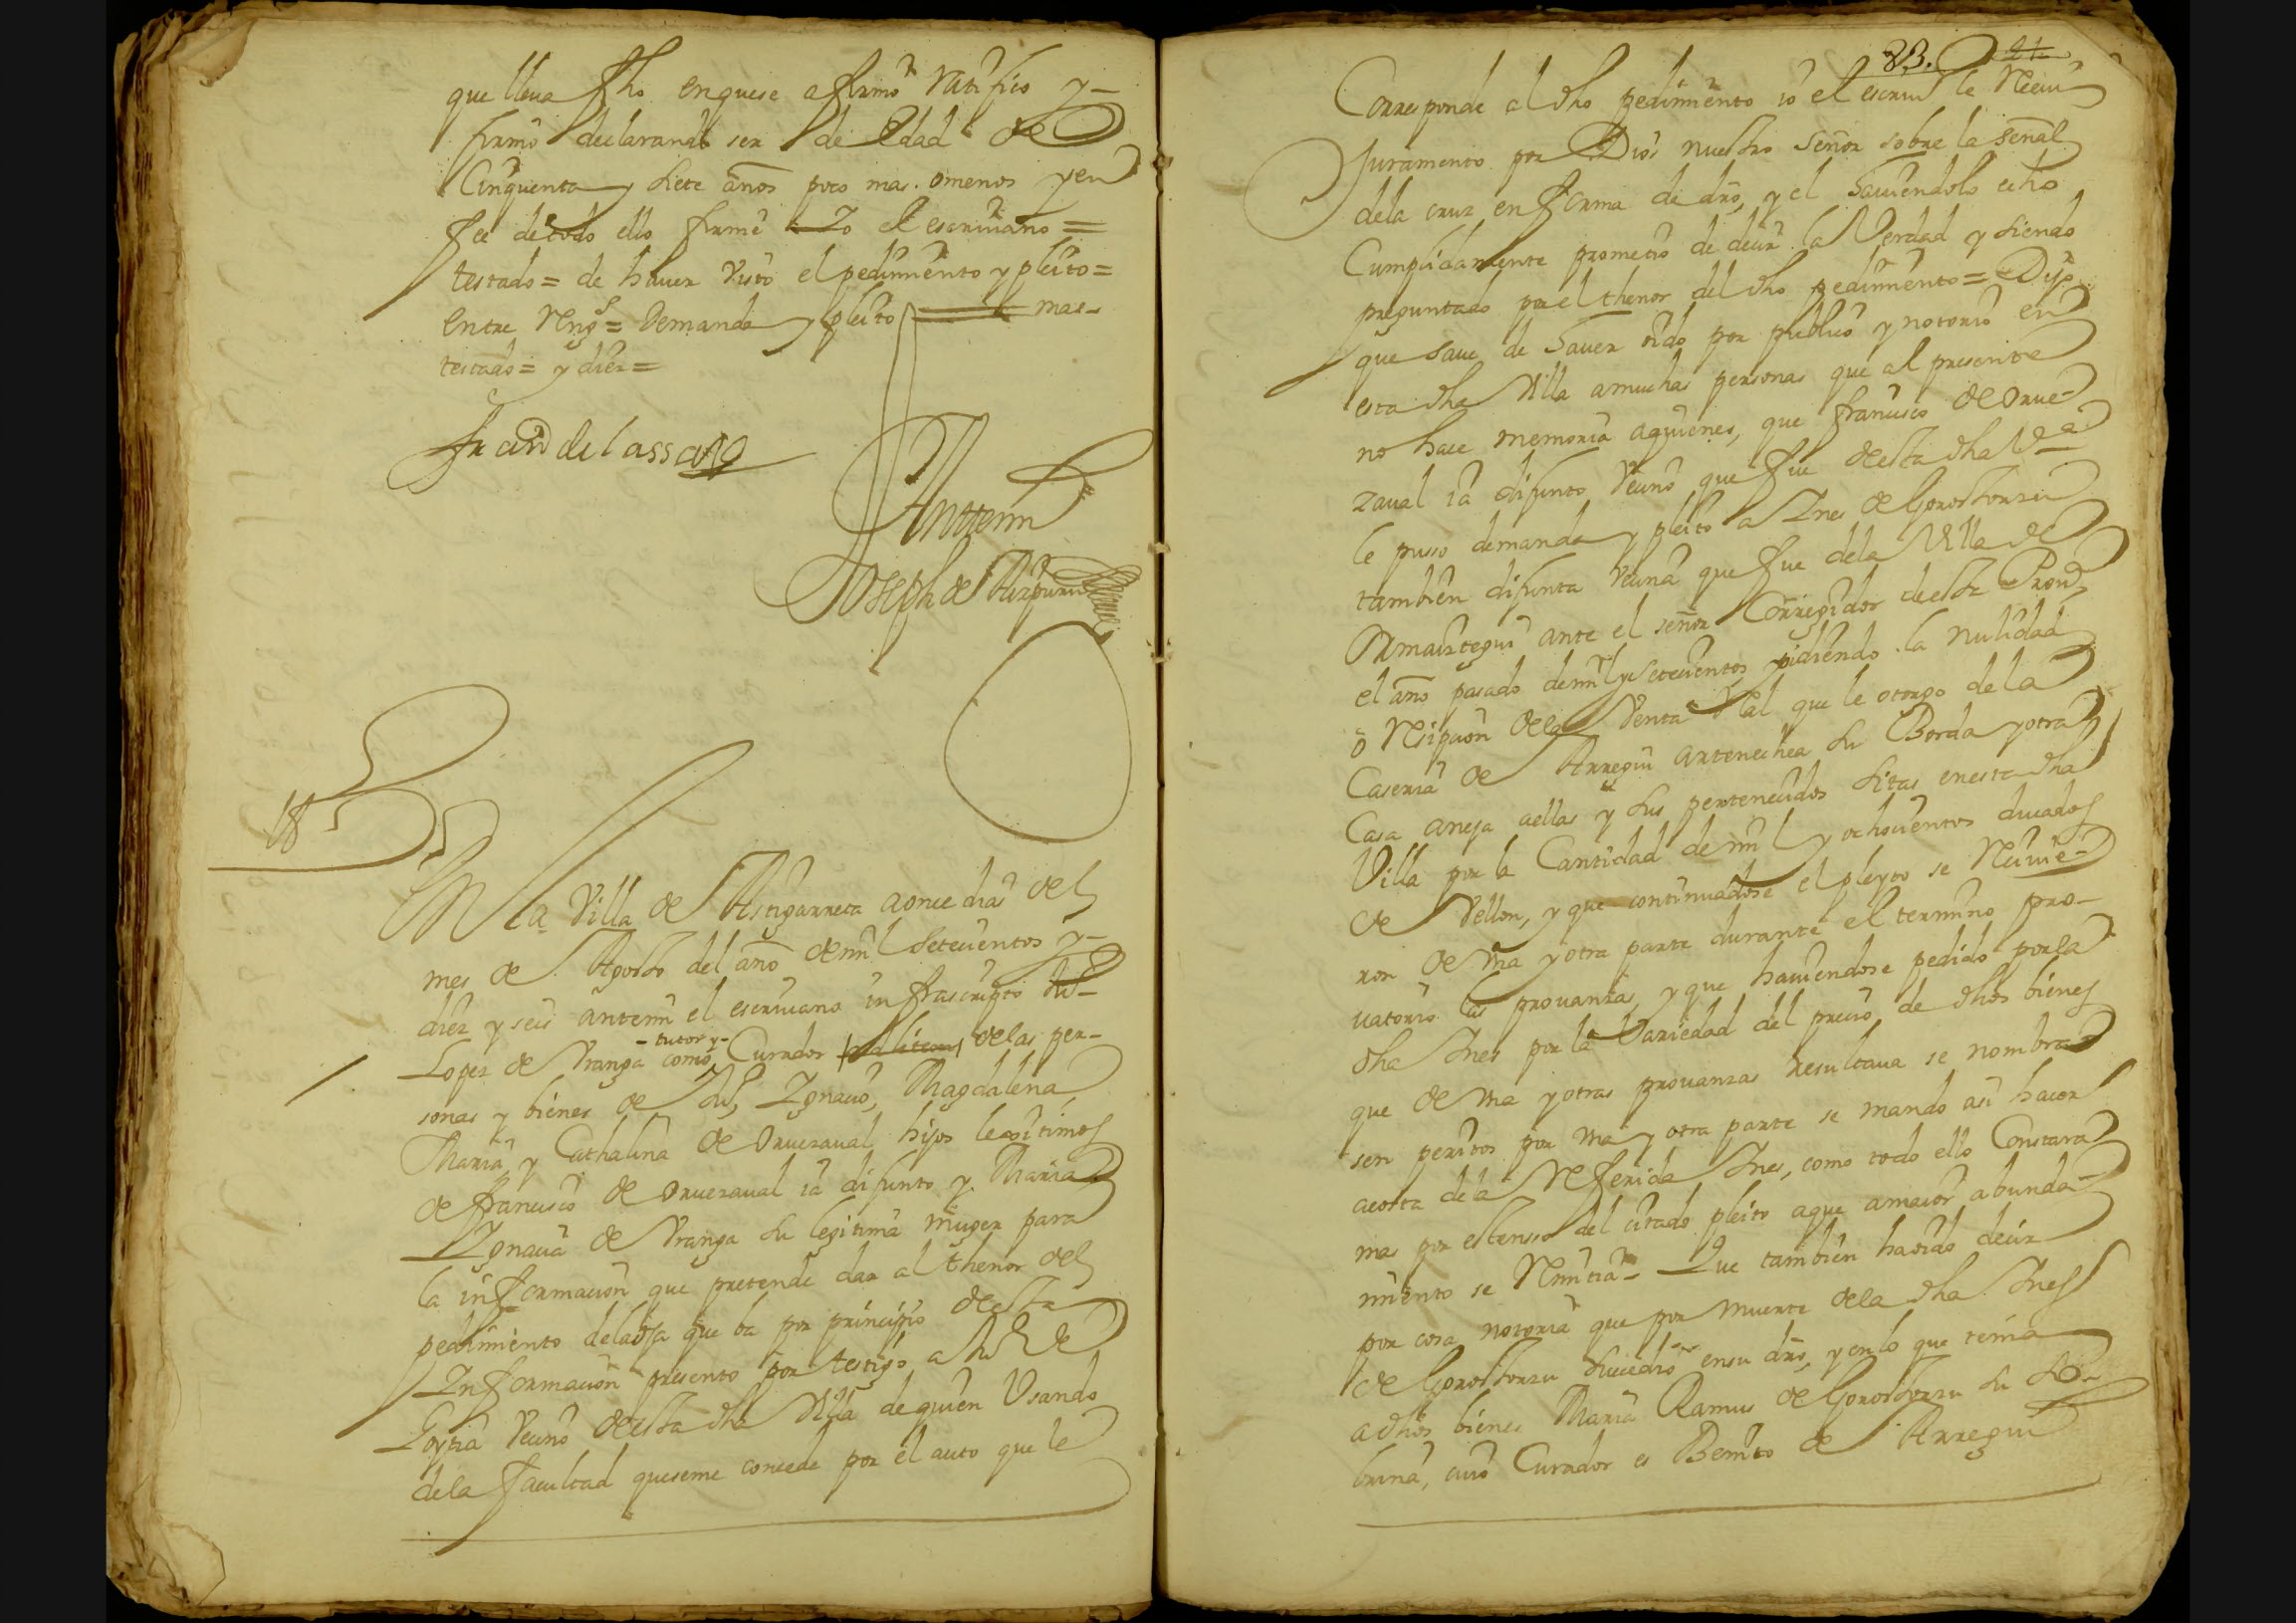 que lleua fho enquese afirmo Ratifico y-
firmo declarando ser de Edad de
Cinquenta y siete años poco mas. omenos y en
fee de todo ello firme Yo el escriuano =
testado = de hauer visto el pedimiento y pleito =
entre Rengs = Demanda y pleito mas-
testado = y diez =
Fran de lassa
Antemi
Joseph de Aizpuru
18
En la Villa de Astigarreta a once dias del
mes de Agosto del año de mil setecientos y-
diez y seis antemi el escriuano infrascripto
-tutor y-
Lopez de Vranga como Curador ad litem de las per-
sonas y bienes de Ju, Ygnacio, Magdalena,
Maria, y Cathalina de Oruezaual hijos lexitimos
de francisco de Oruezaual ia difunto y Maria
Ygnacia de Vranga su legitima muger para
la informacion que pretende dar al thenor del
pedimiento de la oja que ba por principio desta
Informacion presento por testigo a de
Goytia Vecino de esta dha Villa de quien Vsando
dela facultad queseme concede por el auto que le
83. 21
Corresponde al dho pedimiento io el escriu le Receui
Juramento por Dios nuestro Señor sobre la señal
dela cruz en forma de dro, y el hauiendolo echo
Cumplidamente prometio de decir la Verdad y siendo
preguntado por el thenor del dho pedimiento = Dijo
que saue de hauer oido por publico y notorio en
esta dha Villa a muchas personas que al presente
no hace memoria aquienes, que francisco de Orue-
zaual ia difunto Vecino que fue de esta dha Va
le puso demanda y pleito a Ines de Gorostorzu
tambien difunta Vecina que fue dela Villa de
Ormaiztegui ante el señor Corregidor de esta Prou
el año pasado de mil y Setecientos pidiendo la nulidad
ô Resicion dela Venta Real que le otorgo de la
Caseria de Arregui artenechea su Borda y otra
Casa aneja a ellas y sus pertenecidos sitas en esta dha
Villa por la Cantidad de mil y ochocientos ducados
de Vellon, y que continuadose el pleyto se Reciuie-
ron de vna y otra parte durante el termino pro-
uatorio las prouanzas, y que hauiendose pedido por la
dha Ines por la Variedad del precio de dhos bienes
que de vna y otras prouanzas Resultaua se nombra
sen peritos por vna y otra parte se mando asi hacer
acosta dela Referida Ines, como todo ello Constara
mas por estenso del citado pleito aque amaior abunda-
miento se Remitia- Que tambien ha oido decir
por cosa notoria que por muerte dela dha Ines
de Gorostorzu sucedio en su dro, y en lo que tenia
a dhos bienes Maria Ramus de Gorostorzu su So-
brina, cuio Curador es Benito de Arregui